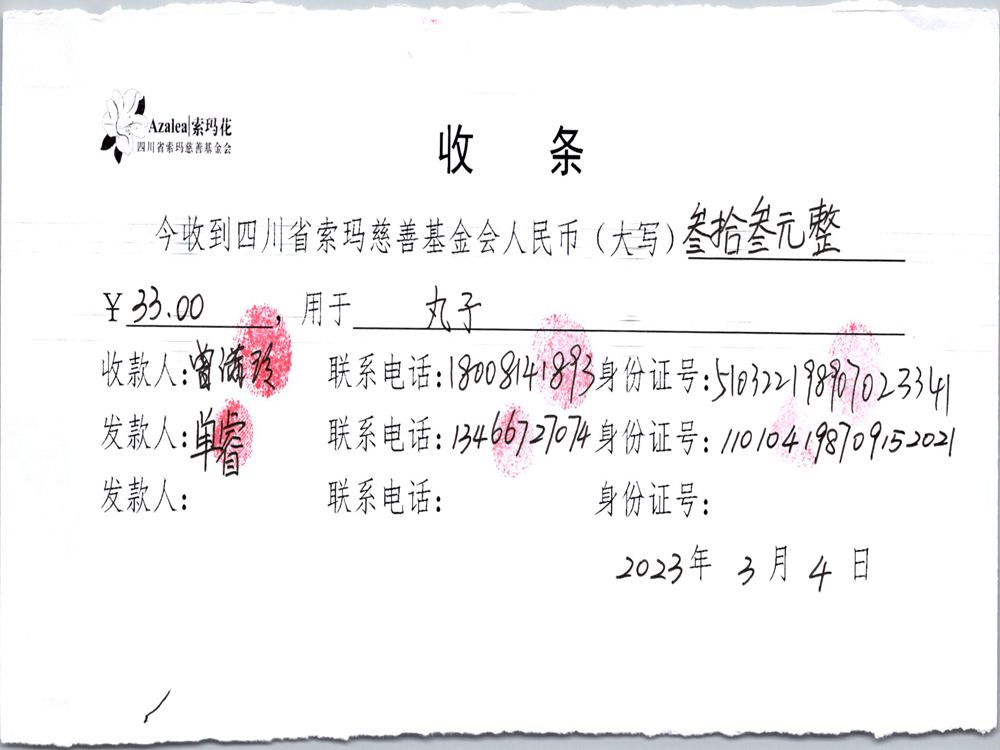 Azalea|索玛花
四川省索玛慈善基金会
收 条
今收到四川省索玛慈善基金会人民币（大写）叁拾叁元整
￥33.00，用于 丸子
收款人:曾满玲 联系电话:18008141893 身份证号:510322198907023341
发款人:单睿 联系电话:13466727074 身份证号:110104198709152021
发款人: 联系电话: 身份证号:
2023年 3 月 4 日